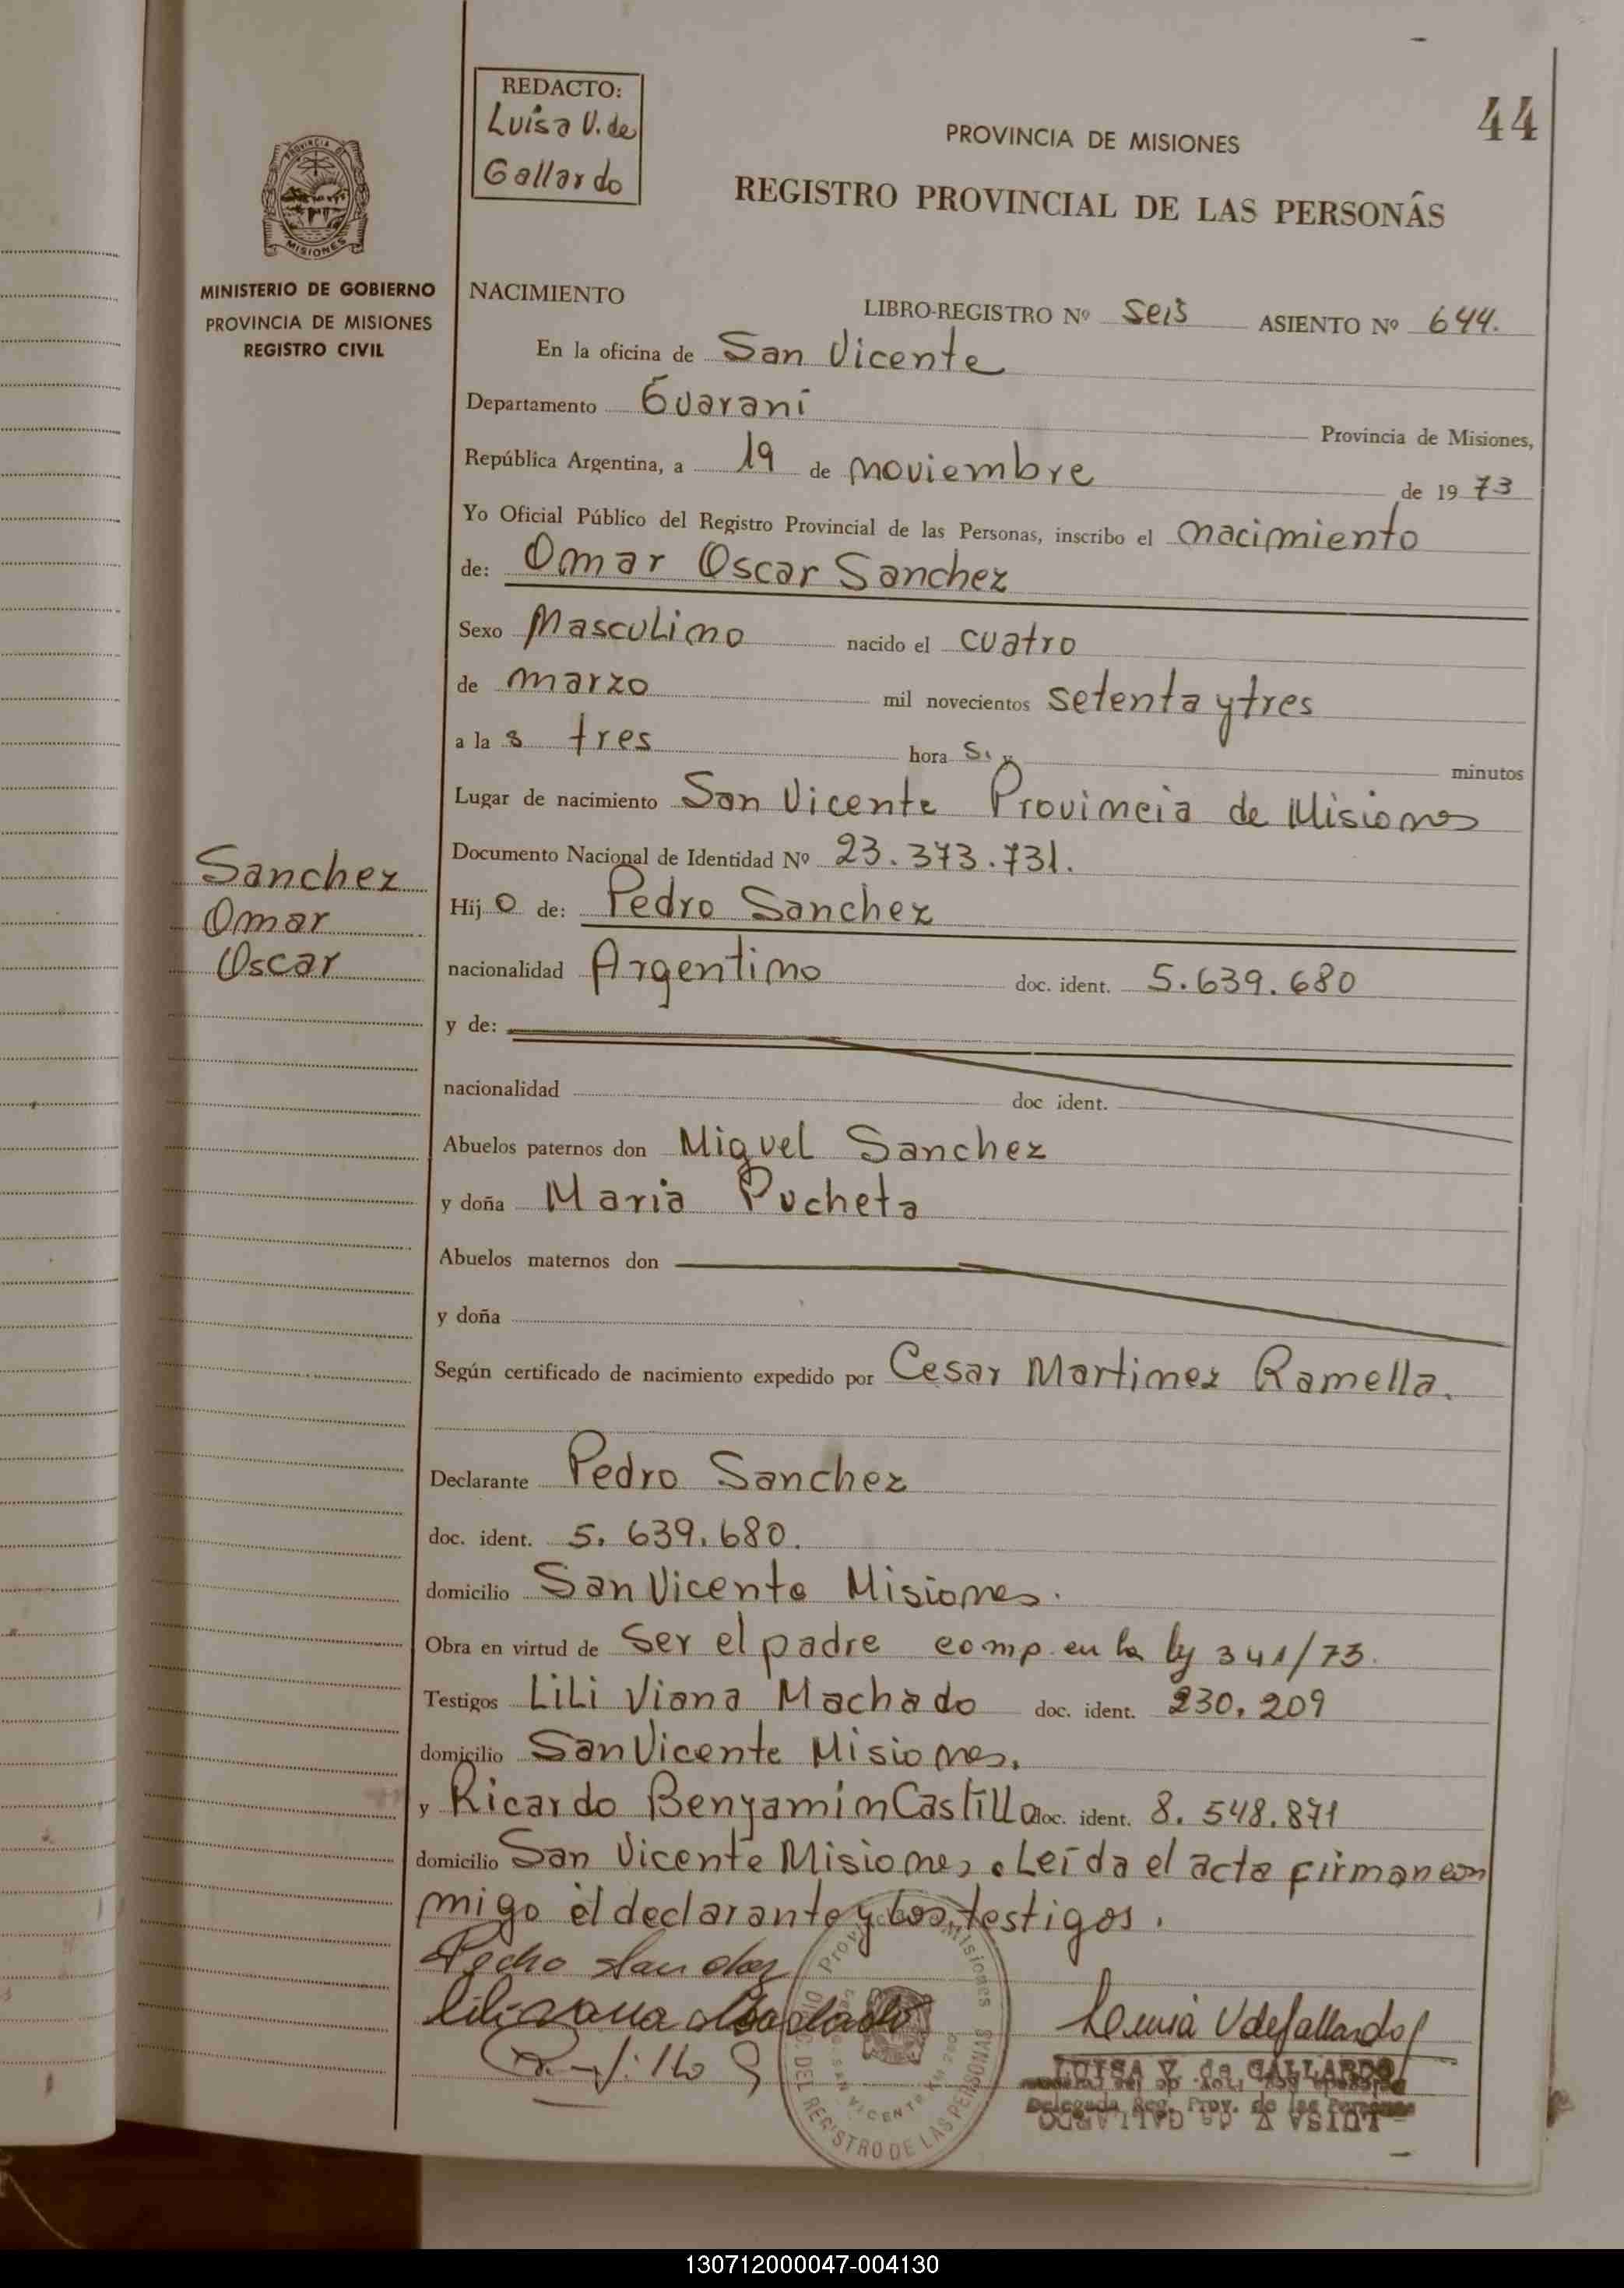 REDACTO:
Luisa V. de
Gallardo
44
PROVINCIA DE MISIONES
REGISTRO PROVINCIAL DE LAS PERSONAS
MISIONES
MINISTERIO DE GOBIERNO
PROVINCIA DE MISIONES
REGISTRO CIVIL
NACIMIENTO
LIBRO-REGISTRO Nº seis ASIENTO Nº 644.
En la oficina de San Vicente
Departamento Guaraní
Provincia de Misiones,
República Argentina, a 19 de noviembre de 1973
Yo Oficial Público del Registro Provincial de las Personas, inscribo el nacimiento
de: Omar Oscar Sanchez
Sexo Masculino nacido el cuatro
de marzo mil novecientos setenta y tres
a la s tres hora s. y minutos
Lugar de nacimiento San Vicente Provincia de Misiones
Documento Nacional de Identidad Nº 23.373.731.
Sanchez
Omar
Oscar
Hij o de: Pedro Sanchez
nacionalidad Argentino doc. ident. 5.639.680
y de:
nacionalidad doc ident.
Abuelos paternos don Miguel Sanchez
y doña Maria Pucheta
Abuelos maternos don
y doña
Según certificado de nacimiento expedido por Cesar Martinez Ramella.
Declarante Pedro Sanchez
doc. ident. 5.639.680.
domicilio San Vicente Misiones.
Obra en virtud de Ser el padre comp. en la ly 341/73.
Testigos LiLi Viana Machado doc. ident. 230.209
domicilio San Vicente Misiones.
y Ricardo Benyamin Castillo doc. ident. 8.548.871
domicilio San Vicente Misiones. Leída el acta firman con
migo el declarante y los testigos.
Pedro Sanchez
Provincia Misiones
DEL REGISTRO DE LAS PERSONAS
SAN VICENTE
LUISA V. de GALLARDO
Delegada Reg. Prov. de las Personas
LUISA V. de GALLARDO
130712000047-004130